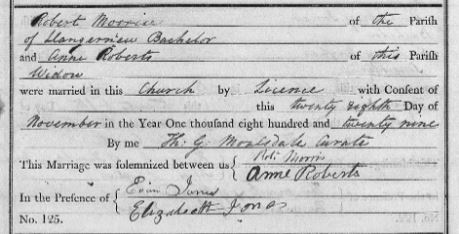 Robert Morris of the Parish
of Llangerniew Bachelor
and Anne Roberts of this Parish
Widow
were married in this Church by Licence with Consent of
this twenty eighth Day of
November in the Year One thousand eight hundred and twenty nine
By me Th. G. Moulsdale Curate
This Marriage was solemnized between us { Robt Morris
Anne Roberts
In the Presence of { Evan Jones
Elizabeth Jones
No. 125.